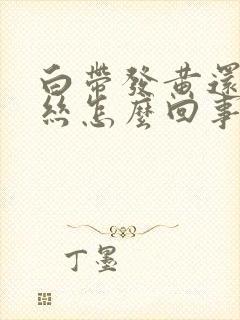 白帶發黃還
絲怎麼回事
丁墨